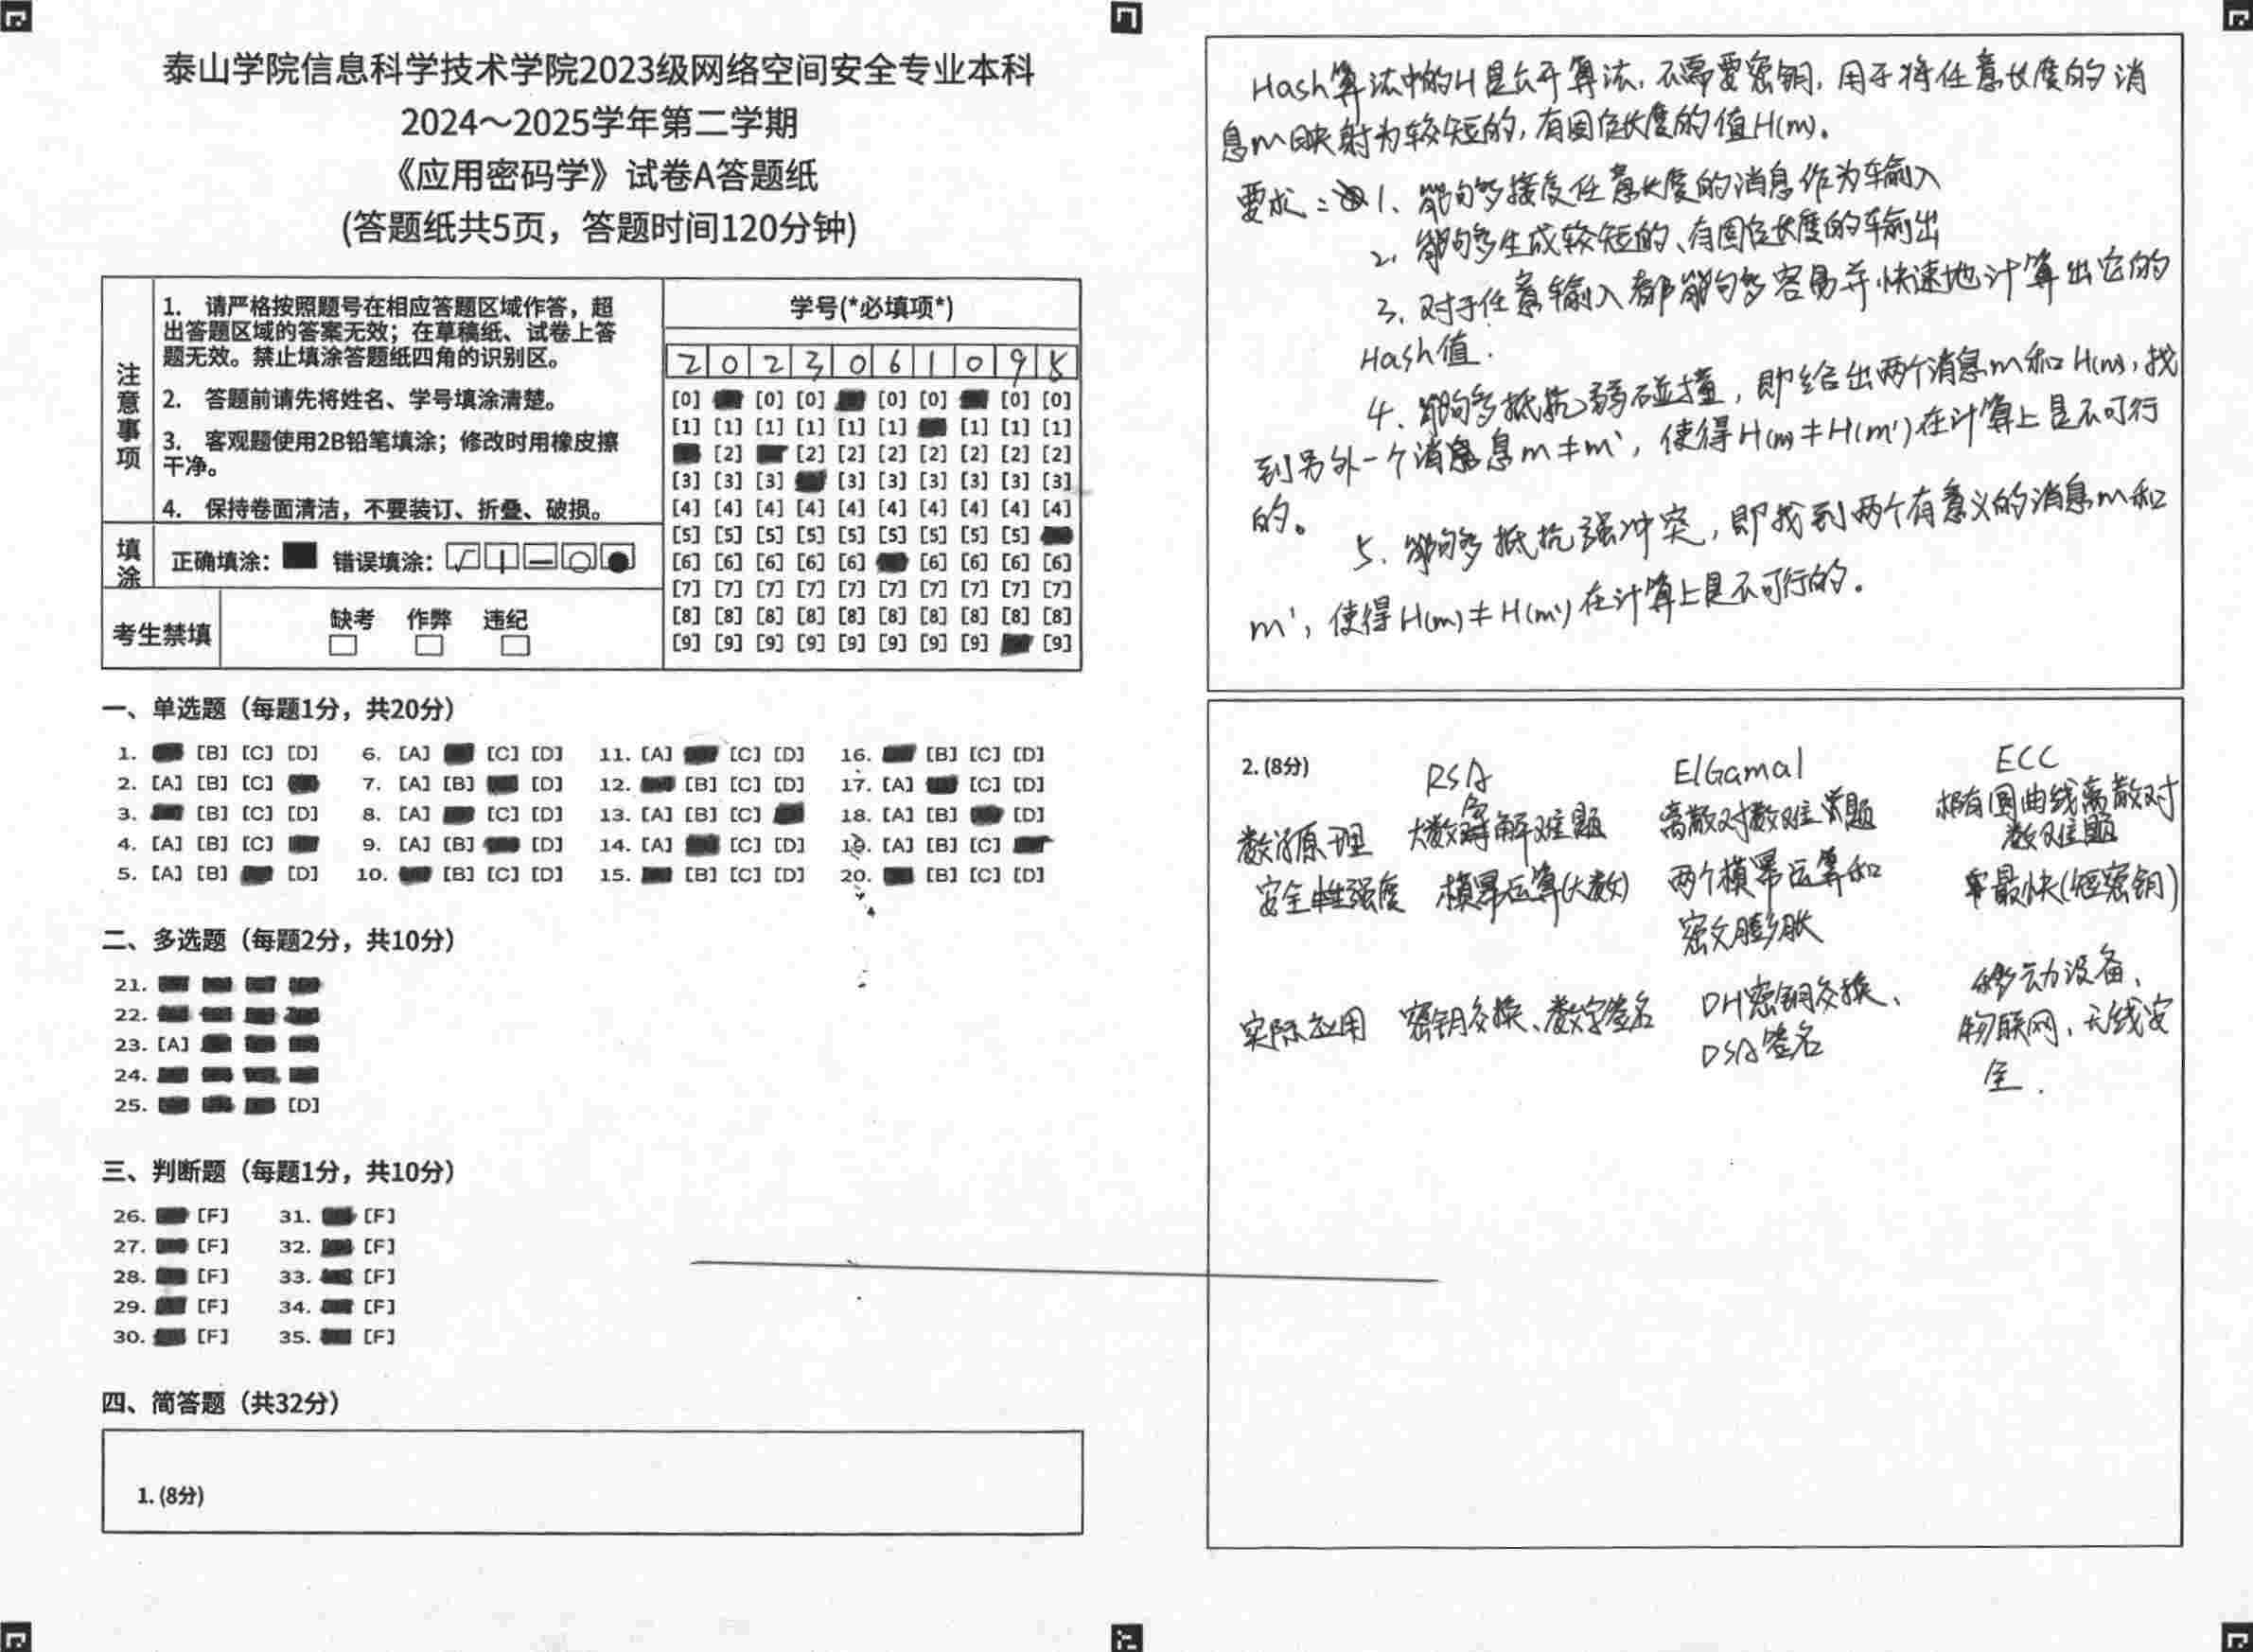 泰山学院信息科学技术学院2023级网络空间安全专业本科
2024～2025学年第二学期
《应用密码学》试卷A答题纸
(答题纸共5页，答题时间120分钟)
注意事项
1. 请严格按照题号在相应答题区域作答，超
出答题区域的答案无效；在草稿纸、试卷上答
题无效。禁止填涂答题纸四角的识别区。
2. 答题前请先将姓名、学号填涂清楚。
3. 客观题使用2B铅笔填涂；修改时用橡皮擦
干净。
4. 保持卷面清洁，不要装订、折叠、破损。
填涂
正确填涂： 错误填涂：
考生禁填
缺考 作弊 违纪
学号(*必填项*)
2 0 2 3 0 6 1 0 9 5
[0] [0] [0] [0] [0] [0] [0]
[1] [1] [1] [1] [1] [1] [1] [1] [1]
[2] [2] [2] [2] [2] [2] [2] [2]
[3] [3] [3] [3] [3] [3] [3] [3] [3]
[4] [4] [4] [4] [4] [4] [4] [4] [4] [4]
[5] [5] [5] [5] [5] [5] [5] [5] [5]
[6] [6] [6] [6] [6] [6] [6] [6] [6]
[7] [7] [7] [7] [7] [7] [7] [7] [7] [7]
[8] [8] [8] [8] [8] [8] [8] [8] [8] [8]
[9] [9] [9] [9] [9] [9] [9] [9] [9]
一、单选题（每题1分，共20分）
1. [B] [C] [D] 6. [A] [C] [D] 11. [A] [C] [D] 16. [B] [C] [D]
2. [A] [B] [C] 7. [A] [B] [D] 12. [B] [C] [D] 17. [A] [C] [D]
3. [B] [C] [D] 8. [A] [C] [D] 13. [A] [B] [C] 18. [A] [B] [D]
4. [A] [B] [C] 9. [A] [B] [D] 14. [A] [C] [D] 19. [A] [B] [C]
5. [A] [B] [D] 10. [B] [C] [D] 15. [B] [C] [D] 20. [B] [C] [D]
二、多选题（每题2分，共10分）
21.
22.
23. [A]
24.
25. [D]
三、判断题（每题1分，共10分）
26. [F] 31. [F]
27. [F] 32. [F]
28. [F] 33. [F]
29. [F] 34. [F]
30. [F] 35. [F]
四、简答题（共32分）
1. (8分)
Hash算法中的H是公开算法，不需要密钥，用于将任意长度的消
息m映射为较短的，有固定长度的值H(m)。
要求：1、能够接受任意长度的消息作为输入
2、能够生成较短的、有固定长度的输出
3、对于任意输入都能够容易并快速地计算出它的
Hash值．
4、能够抵抗弱碰撞，即给出两个消息m和H(m)，找
到另外一个消息m≠m'，使得H(m)≠H(m')在计算上是不可行
的。
5、能够抵抗强冲突，即找到两个有意义的消息m和
m'，使得H(m)≠H(m')在计算上是不可行的。
2. (8分)
RSA ElGamal ECC
数学原理 大数分解难题 离散对数难题 椭圆曲线离散对
数难题
安全性强度 模幂运算(大数) 两个模幂运算和 最快(短密钥)
密文膨胀
实际应用 密钥交换、数字签名 DH密钥交换、 移动设备、
DSA签名 物联网、无线安
全．